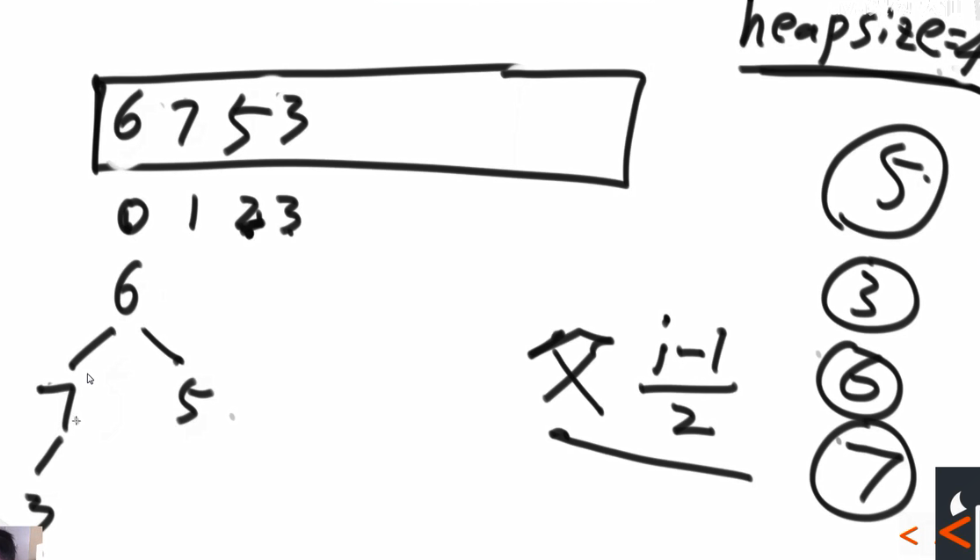 heapsize=4
6 7 5 3
0 1 2 3
6
7 5
3
父 i-1
2
5
3
6
7